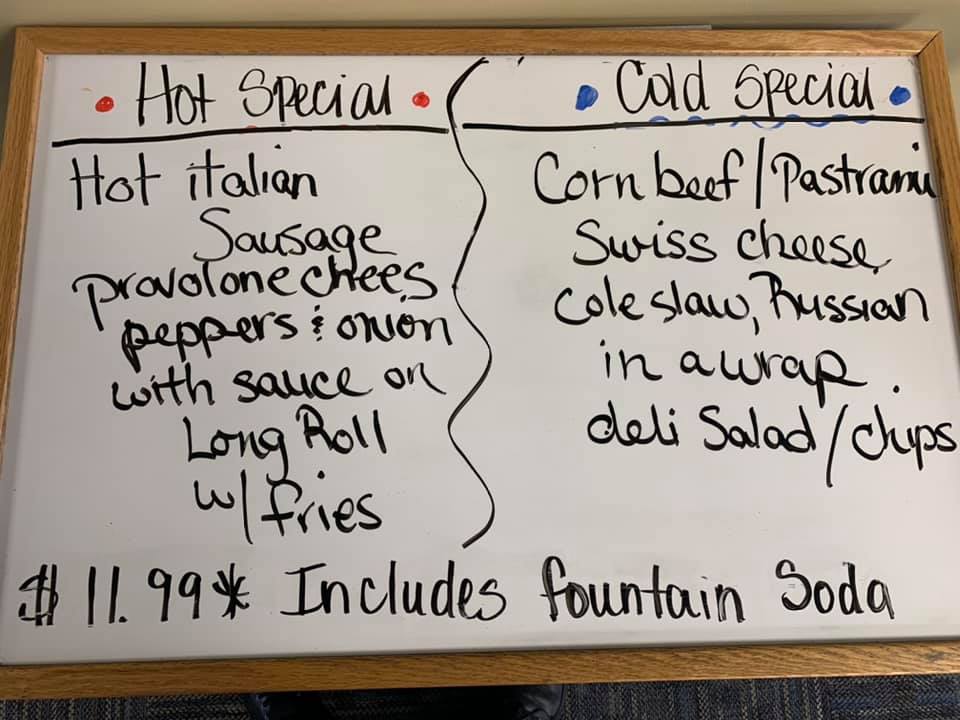 Hot Special
Hot italian
Sausage
provolone chees
peppers & onion
with sauce on
Long Roll
w/ fries
Cold Special
Corn beef / Pastrami
Swiss cheese
Cole slaw, Russian
in a wrap
deli Salad / chips
$ 11.99* Includes fountain Soda